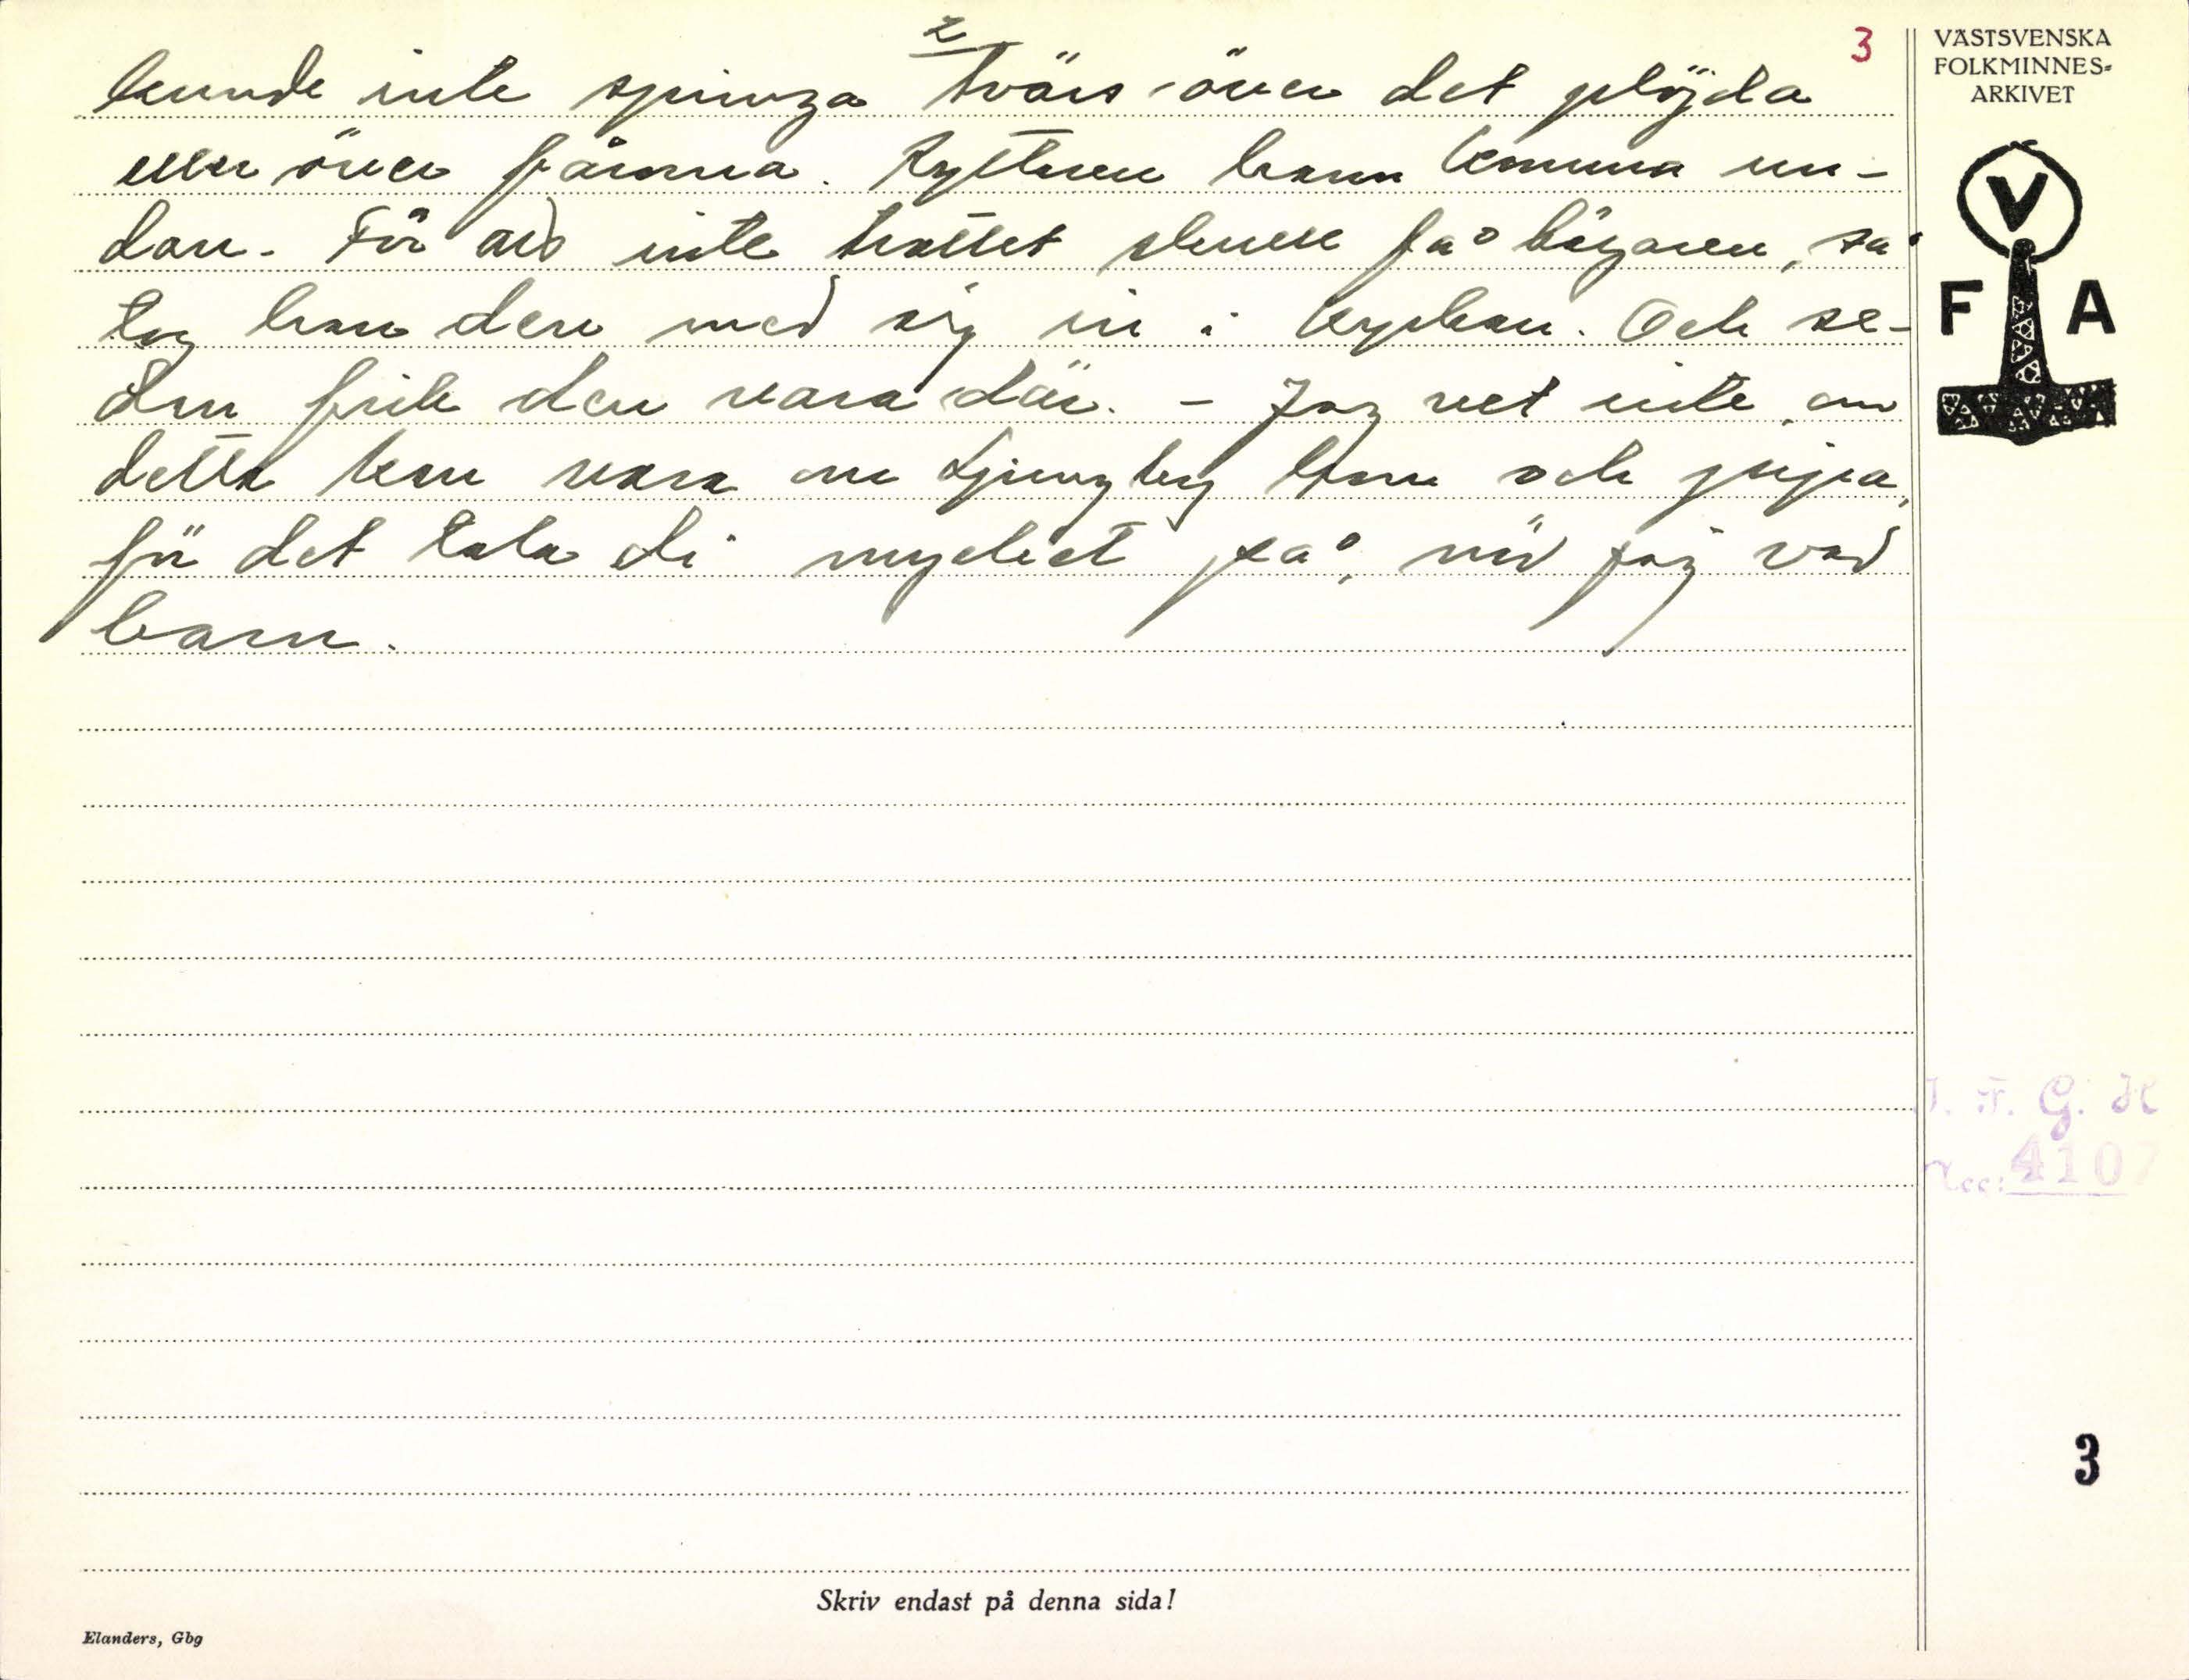 2
3
kunde inte springa tvärs över det plöjda
eller över fårorna. Ryttaren hann komma un-
dan. För att inte trollet skulle få bägaren, så
tog han den med sig in i kyrkan. Och se-
dan fick den vara där. - Jag vet inte, om
detta kan vara om Ljungby horn och pipa,
för det tala di mycket på, när jag var
barn.
VÄSTSVENSKA
FOLKMINNES-
ARKIVET
V
F A
I. F. G. H
Acc: 4107
3
Skriv endast på denna sida!
Elanders, Gbg